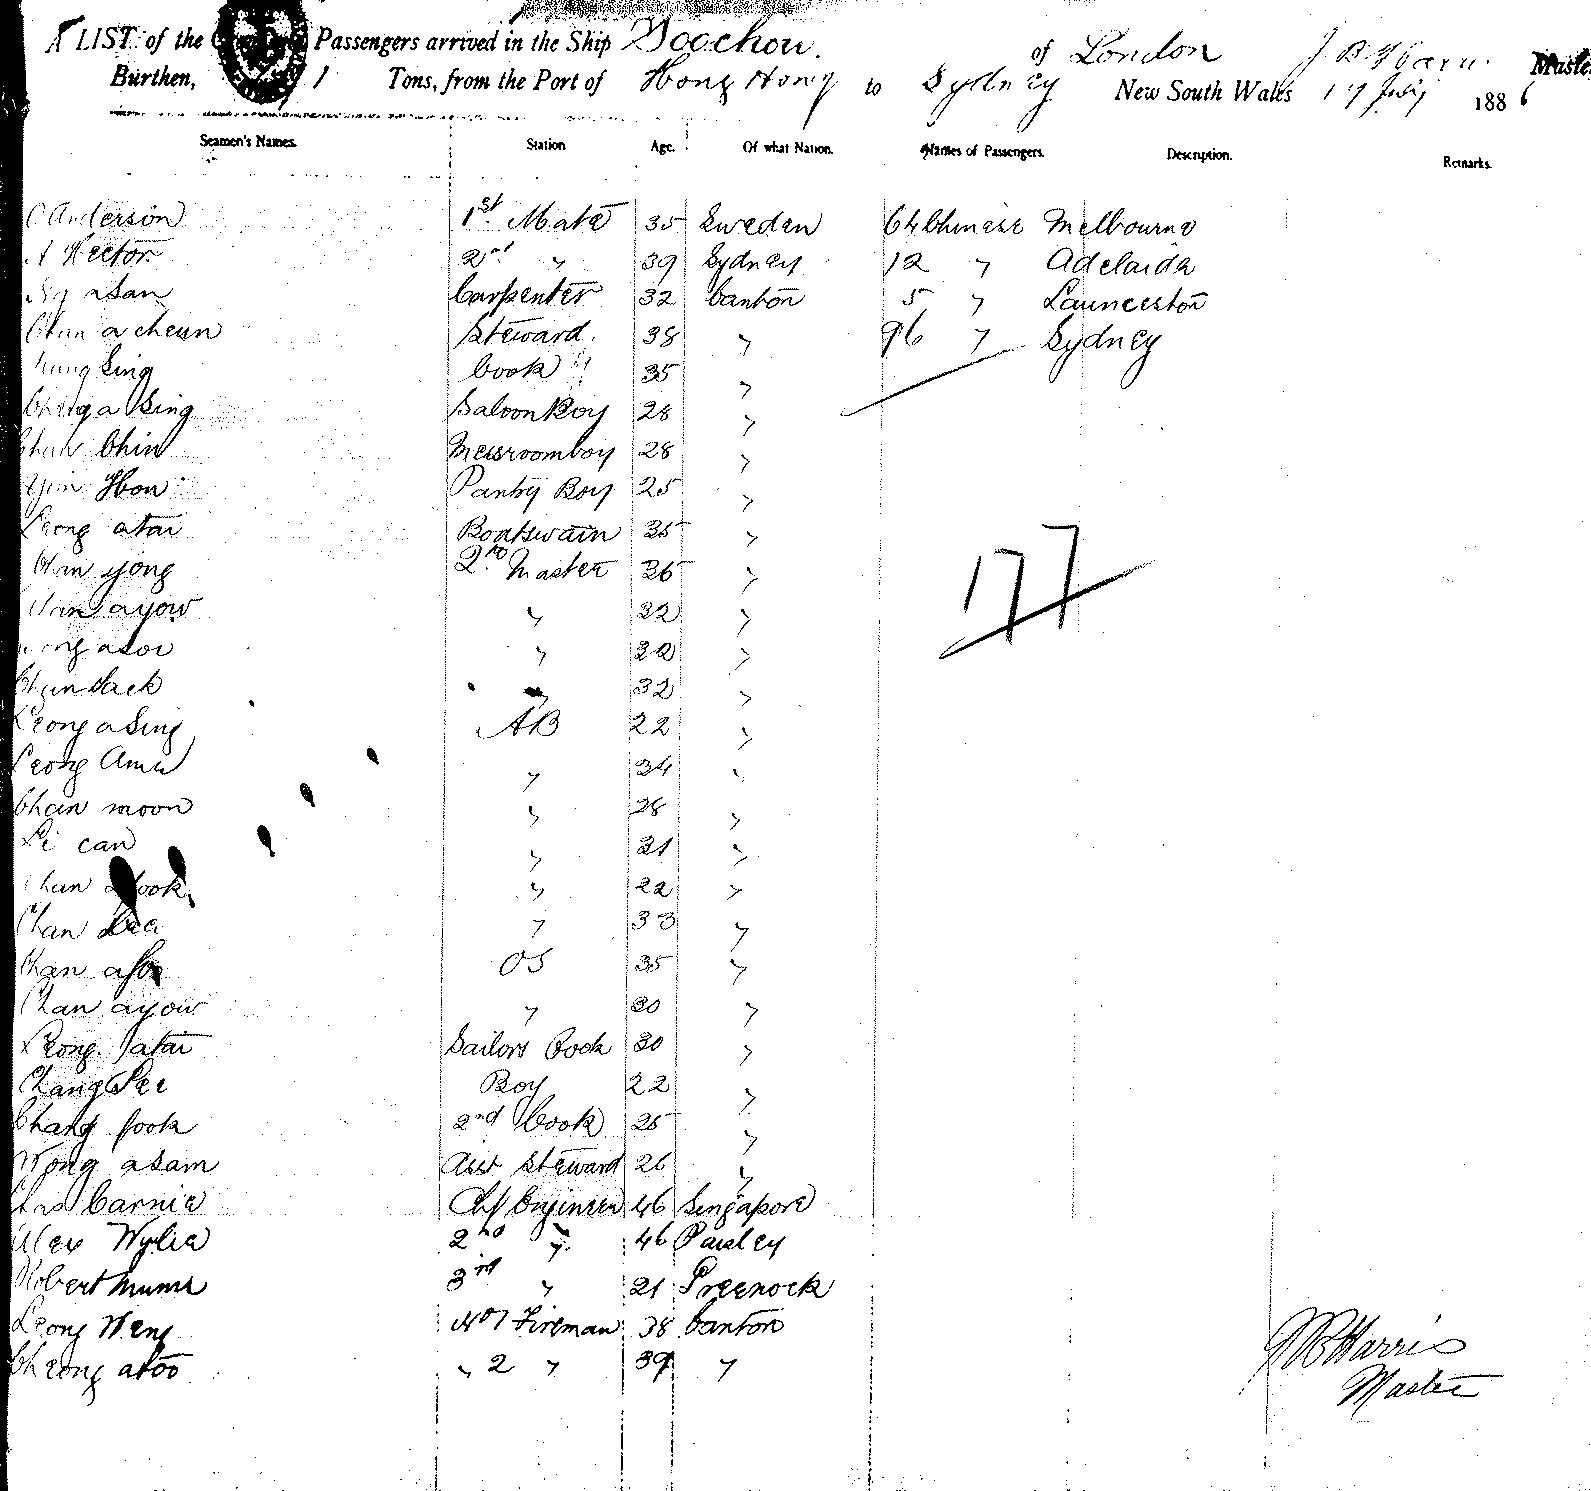 A LIST of the Passengers arrived in the Ship Woochow of London J B Harris Master
Burthen, Tons, from the Port of Hong Kong to Sydney New South Wales 17 July 1886
Seamen's Names. Station Age. Of what Nation. Names of Passengers. Description. Remarks.
Anderson 1st Mate 35 Sweden 64 Chinese Melbourne
A Hector 2nd " 39 Sydney 12 " Adelaide
asan Carpenter 32 Canton 5 " Launceston
Chun a cheun Steward 38 " 96 " Sydney
Sing Cook 35 "
a Sing Saloon Boy 28 "
Chun Chin Messroomboy 28 "
Hou Pantry Boy 25 "
Leong atai Boatswain 35 "
yong 2nd Master 36 "
177
ayow " 32 "
asoi " 22 "
Chun Sack " 32 "
Leong a Sing AB 22 "
Leong Amu " 34 "
Chan moon " 28 "
Li can " 21 "
Chun " 22 "
Chan " 33 "
Chan OS 35 "
Chan ayow " 30 "
Leong atai Sailors Cook 30 "
Chang Boy 22 "
Chang fook 2nd Cook 25 "
Wong asam Asst Steward 26 "
Chas Carnie Chf Engineer 46 Singapore
Alex Wylie 2nd " 46 Paisley
Robert 3rd " 21 Greenock
Leong Weng No 1 Fireman 38 Canton
Cheong atoo " 2 " 39 "
JB Harris
Master